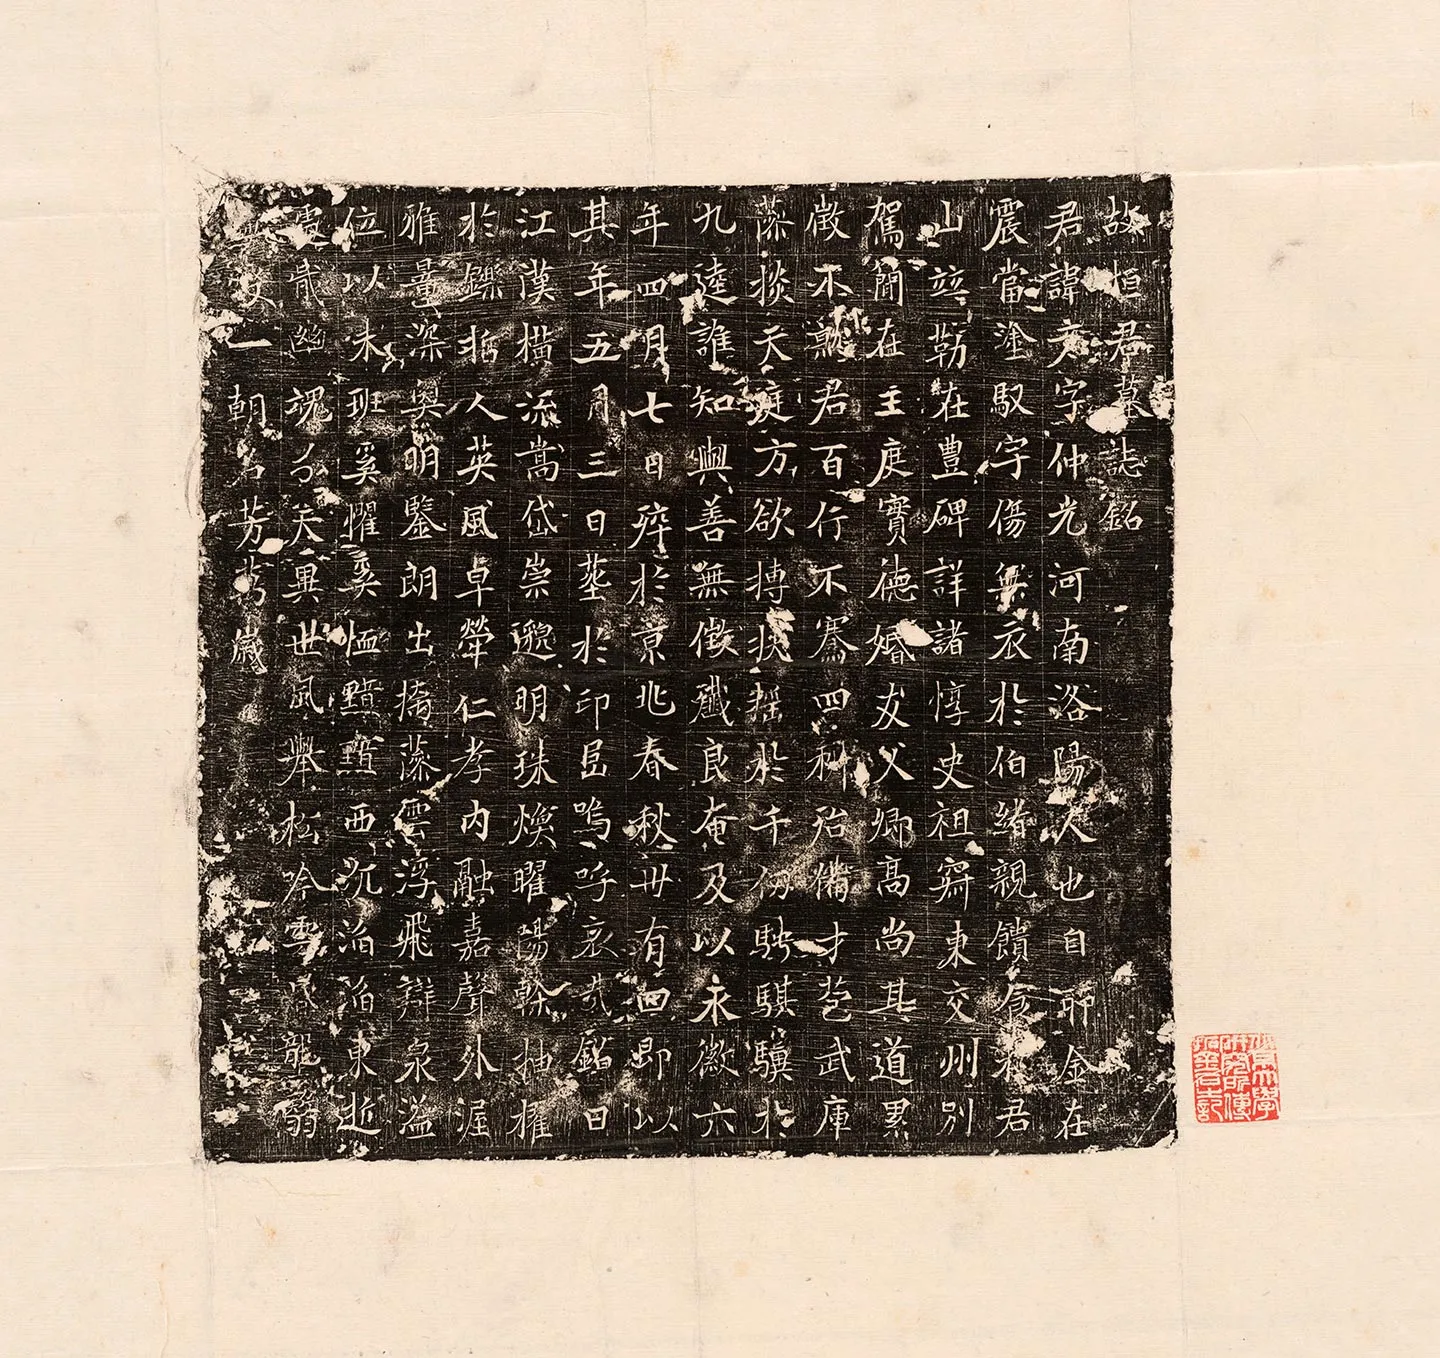 故恒君墓誌銘
君諱彥字仲光河南洛陽人也自卯金在
震當塗馭宇傷無衣於伯緒親饋食於君
山並勒在豐碑詳諸惇史祖齋東交州別
駕簡在主庭實德婚友父卿高尚其道累
徵不就君百行不騫四科殆備才苞武庫
藻掞天庭方欲摶扶搖於千仞騁騏驥於
九逵誰知與善無徵殲良奄及以永徽六
年四月七日殯於京兆春秋卅有四即以
其年五月三日塟於邙昌嗚呼哀哉銘曰
江漢橫流嵩岱崇邈明珠煥曜陽榦抽擢
於鑠哲人英風卓犖仁孝內融嘉聲外渥
雅量深奧明鑒朗出摛藻雲浮飛辯泉溢
位以末班奚懼奚恤黯黯西沉滔滔東逝
歲幽魂兮天異世風舉松吟雲 龍翳
一朝名芳萬歲